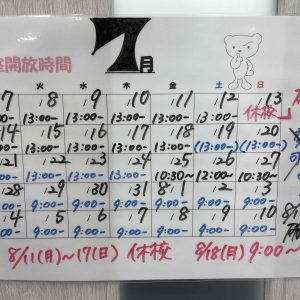 7月
開放時間
火 水 木 金 土 日
7 8 9 10 11 12 13
13:00~ 13:00~ 13:00~ 13:00~ 13:00~ 休校
14 15 16 17 18 19 20
13:00~ 13:00~ 13:00~ 13:00~ (13:00~) (13:00~)
21 22 23 24 25 26 27
13:00~ 13:00~ 10:30~ 12:00~ 10:30~
28 29 30 31 8/1 2 3
9:00~ 9:00~ 9:00~ 9:00~ 9:00~ 9:00~
4 5 6 7 8 9 10
9:00~ 9:00~ 9:00~ 9:00~ 9:00~ 9:00~
8/11(月)~17(日) 休校 8/18(月) 9:00~